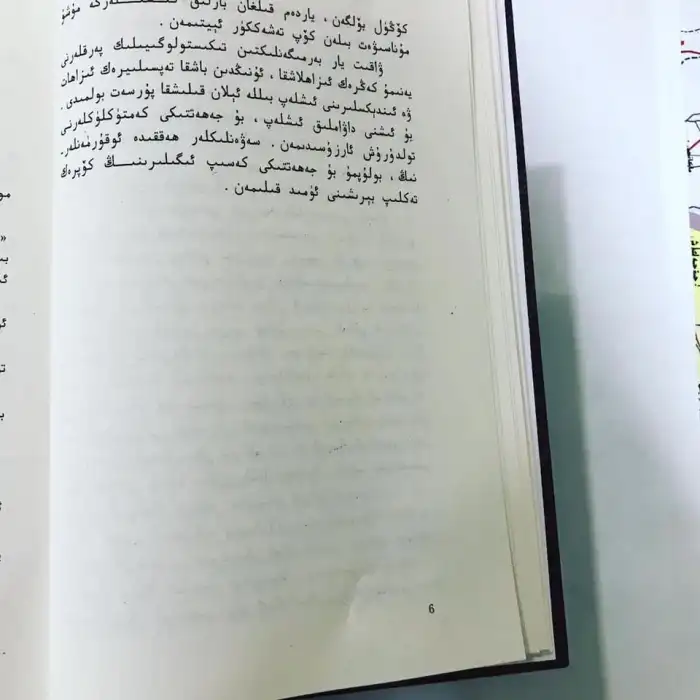 كۆڭۈل بۆلگەن، ياردەم قىلغان بارلىق مۇشۇ
مۇناسىۋەت بىلەن كۆپ تەشەككۈر ئېيتىمەن .
ۋاقىت يار بەرمىگەنلىكتىن تىكىستولوگىيىلىك پەرقلەرنى
يەنىمۇ كەڭرەك ئىزاھلاشقا، ئۇنىڭدىن باشقا تەپسىلىيرەك ئىزاھات
ۋە ئىندېكىسلىرىنى ئىشلەپ بىللە ئېلان قىلىشقا پۇرسەت بولمىدى .
بۇ ئىشنى داۋاملىق ئىشلەپ ، بۇ جەھەتتىكى كەمتۈكلۈكلەرنى
تولدۇرۇش ئارزۇسىدىمەن . سەۋەنلىكلەر ھەققىدە ئوقۇرمەنلەر-
نىڭ ، بولۇپمۇ بۇ جەھەتتىكى كەسىپ ئىگىلىرىنىڭ كۆپرەك
تەكلىپ بېرىشىنى ئۈمىد قىلىمەن .
6